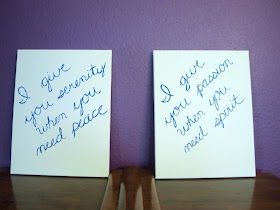 I give
you serenity
when you
need peace
I give
you passion
when you
need spirit